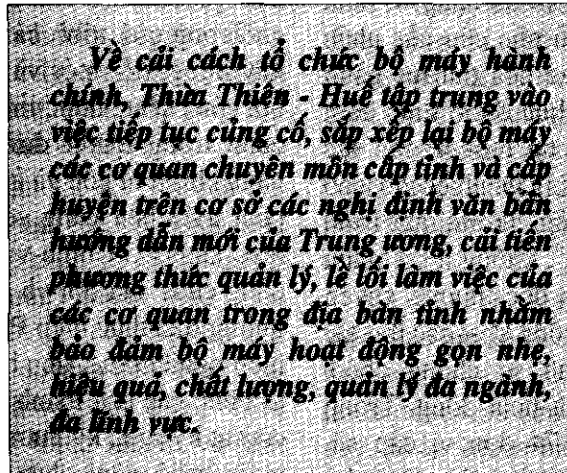 Về cải cách tổ chức bộ máy hành
chính, Thừa Thiên - Huế tập trung vào
việc tiếp tục củng cố, sắp xếp lại bộ máy
các cơ quan chuyên môn cấp tỉnh và cấp
huyện trên cơ sở các nghị định văn bản
hướng dẫn mới của Trung ương, cải tiến
phương thức quản lý, lề lối làm việc của
các cơ quan trong địa bàn tỉnh nhằm
bảo đảm bộ máy hoạt động gọn nhẹ,
hiệu quả, chất lượng, quản lý đa ngành,
đa lĩnh vực.